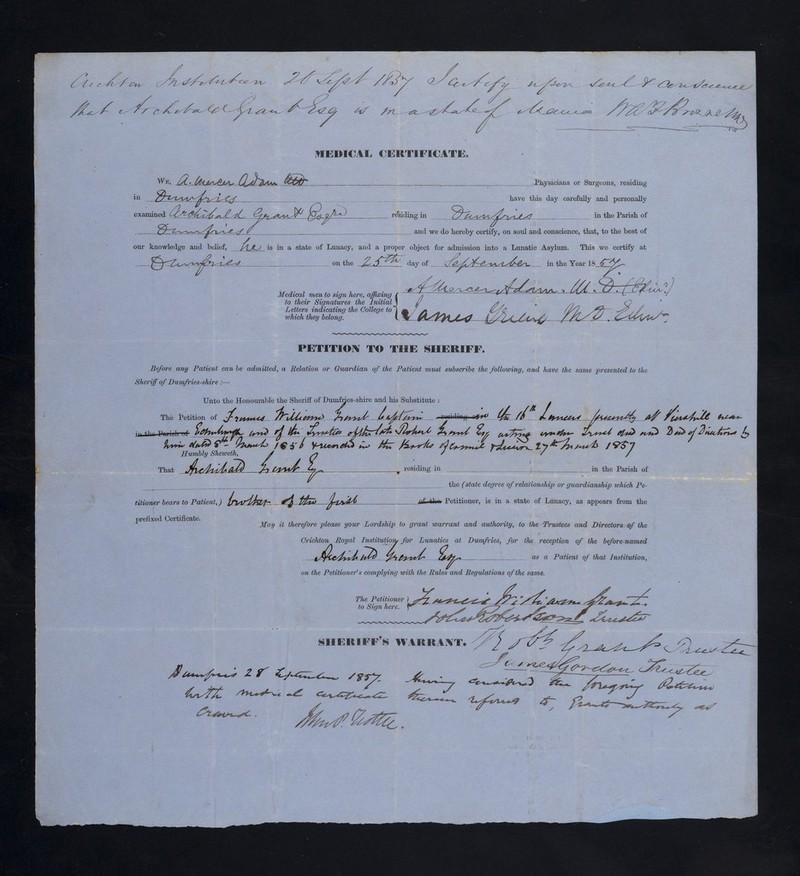 Crichton Institution 26 Sept 1857 I certify upon soul & conscience
that Archibald Grant Esq is in a state of Mania W A F Browne
MEDICAL CERTIFICATE.
We, A. Mercer Adam MD Physicians or Surgeons, residing
in Dumfries have this day carefully and personally
examined Archibald Grant Esqre residing in Dumfries in the Parish of
Dumfries and we do hereby certify, on soul and conscience, that, to the best of
our knowledge and belief, he is in a state of Lunacy, and a proper object for admission into a Lunatic Asylum. This we certify at
Dumfries on the 25th day of September in the Year 1857
Medical men to sign here, affixing
to their Signatures the Initial
Letters indicating the College to
which they belong.
A Mercer Adam. M.D. (Edinr.)
James M.D. Edinr.
PETITION TO THE SHERIFF.
Before any Patient can be admitted, a Relation or Guardian of the Patient must subscribe the following, and have the same presented to the
Sheriff of Dumfries-shire :—
Unto the Honourable the Sheriff of Dumfries-shire and his Substitute :
The Petition of Francis William Grant Captain residing in the 16th Lancers presently at Piershill near
in the Parish of Edinburgh and of the Trustees of the late Robert Grant Esq acting under Trust and Deed of Directions by
him dated 5th March 1856 & recorded in the Books of Council & Session 27th March 1857
Humbly Sheweth,
That Archibald Grant Esq residing in in the Parish of
the (state degree of relationship or guardianship which Pe-
titioner bears to Patient,) brother of the first of the Petitioner, is in a state of Lunacy, as appears from the
prefixed Certificate.
May it therefore please your Lordship to grant warrant and authority, to the Trustees and Directors of the
Crichton Royal Institution for Lunatics at Dumfries, for the reception of the before-named
Archibald Grant Esq as a Patient of that Institution,
on the Petitioner's complying with the Rules and Regulations of the same.
The Petitioner
to Sign here.
Francis William Grant.
John Robert Grant Trustee
Robt Grant Trustee
James Gordon Trustee
SHERIFF'S WARRANT.
Dumfries 28 September 1857. Having considered the foregoing Petition
with medical certificate therein referred to, Grants authority as
craved.